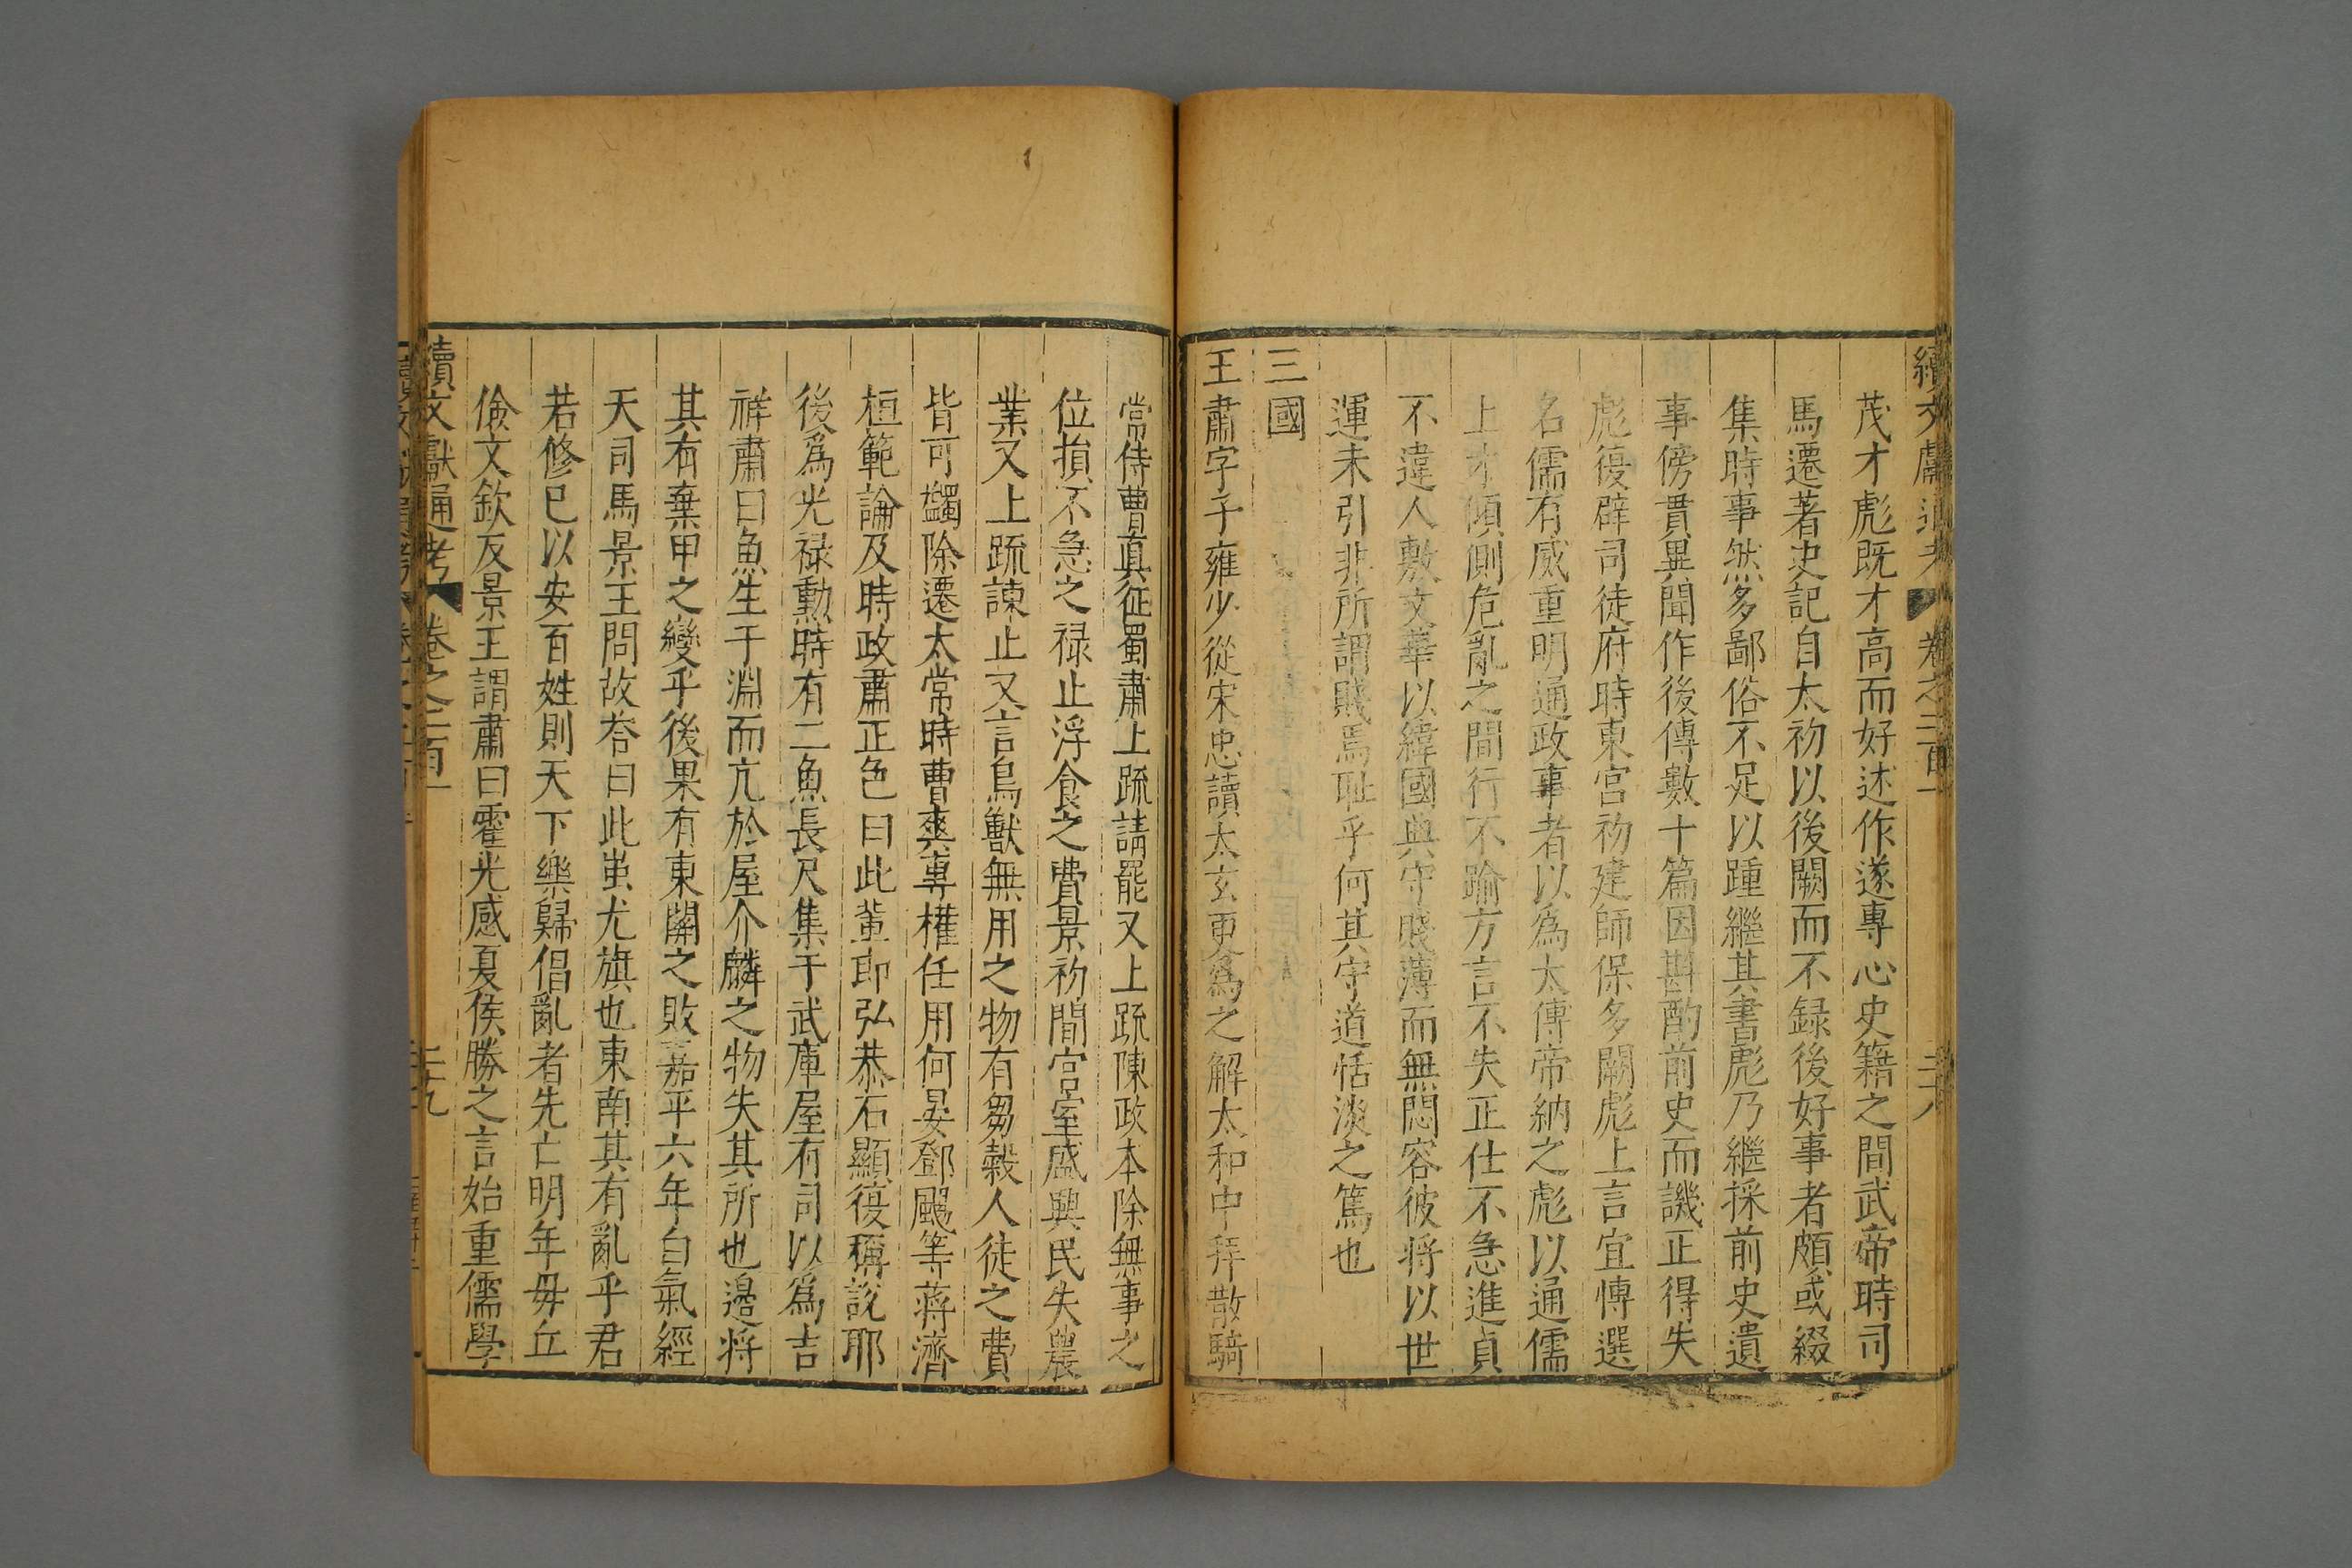 續文獻通考 卷之二百一 二十八
茂才彪既才高而好述作遂專心史籍之間武帝時司
馬遷著史記自太初以後闕而不録後好事者頗或綴
集時事然多鄙俗不足以踵繼其書彪乃繼採前史遺
事傍貫異聞作後傳數十篇因斟酌前史而譏正得失
彪復辟司徒府時東宮初建師保多闕彪上言宜愽選
名儒有威重明通政事者以為太傅帝納之彪以通儒
上才傾側危亂之間行不踰方言不失正仕不急進貞
不違人敷文華以緯國典守賤薄而無悶容彼將以世
運未引非所謂賤焉耻乎何其守道恬淡之篤也
三國
王肅字子雍少從宋忠讀太玄更為之解太和中拜散騎
常侍曹真征蜀肅上疏請罷又上疏陳政本除無事之
位損不急之禄止浮食之費景初間宫室盛興民失農
業又上疏諫止又言鳥獸無用之物有芻穀人徒之費
皆可蠲除遷太常時曹爽專權任用何晏鄧颺等蔣濟
桓範論及時政肅正色曰此輩即弘恭石顯復稱說耶
後爲光禄勳時有二魚長尺集于武庫屋有司以爲吉
祥肅曰魚生于淵而亢於屋介鱗之物失其所也邊將
其有棄甲之變乎後果有東關之敗嘉平六年白氣經
天司馬景王問故荅曰此蚩尤旗也東南其有亂乎君
若修已以安百姓則天下樂歸倡亂者先亡明年毋丘
儉文欽反景王謂肅曰霍光感夏侯勝之言始重儒學
續文獻通考 卷之二百一 二十九